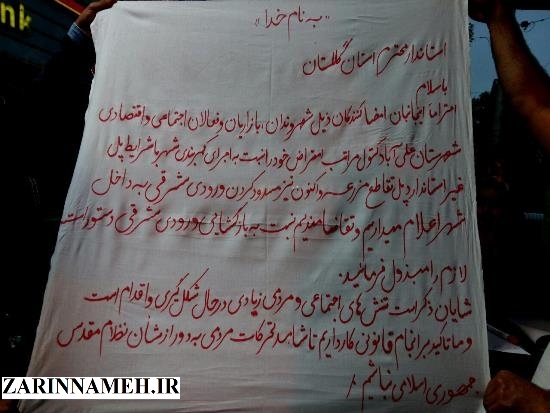 «به نام خدا»
استاندار محترم استان گلستان
باسلام
احتراما اینجانبان امضا کنندگان ذیل شهروندان ، بازاریان و فعالان اجتماعی و اقتصادی
شهرستان علی آباد کتول مراتب اعتراض خود را نسبت به اجرای کمربندی شهر با شرایط پل
غیر استاندارد پل تقاطع مزرعه و اکنون نیز مسدود کردن ورودی مشرقی به داخل
شهر اعلام میداریم و تقاضامندیم نسبت به بازگشایی ورودی مشرقی دستورات
لازم را مبذول فرمائید.
شایان ذکر است تنش های اجتماعی و مردمی زیادی در حال شکل گیری و اقدام است
و ما تاکید بر انجام قانونی کار داریم تا شاهد تحرکات مردمی به دور از شان نظام مقدس
جمهوری اسلامی نباشیم /
nk
ZARINNAMEH.IR